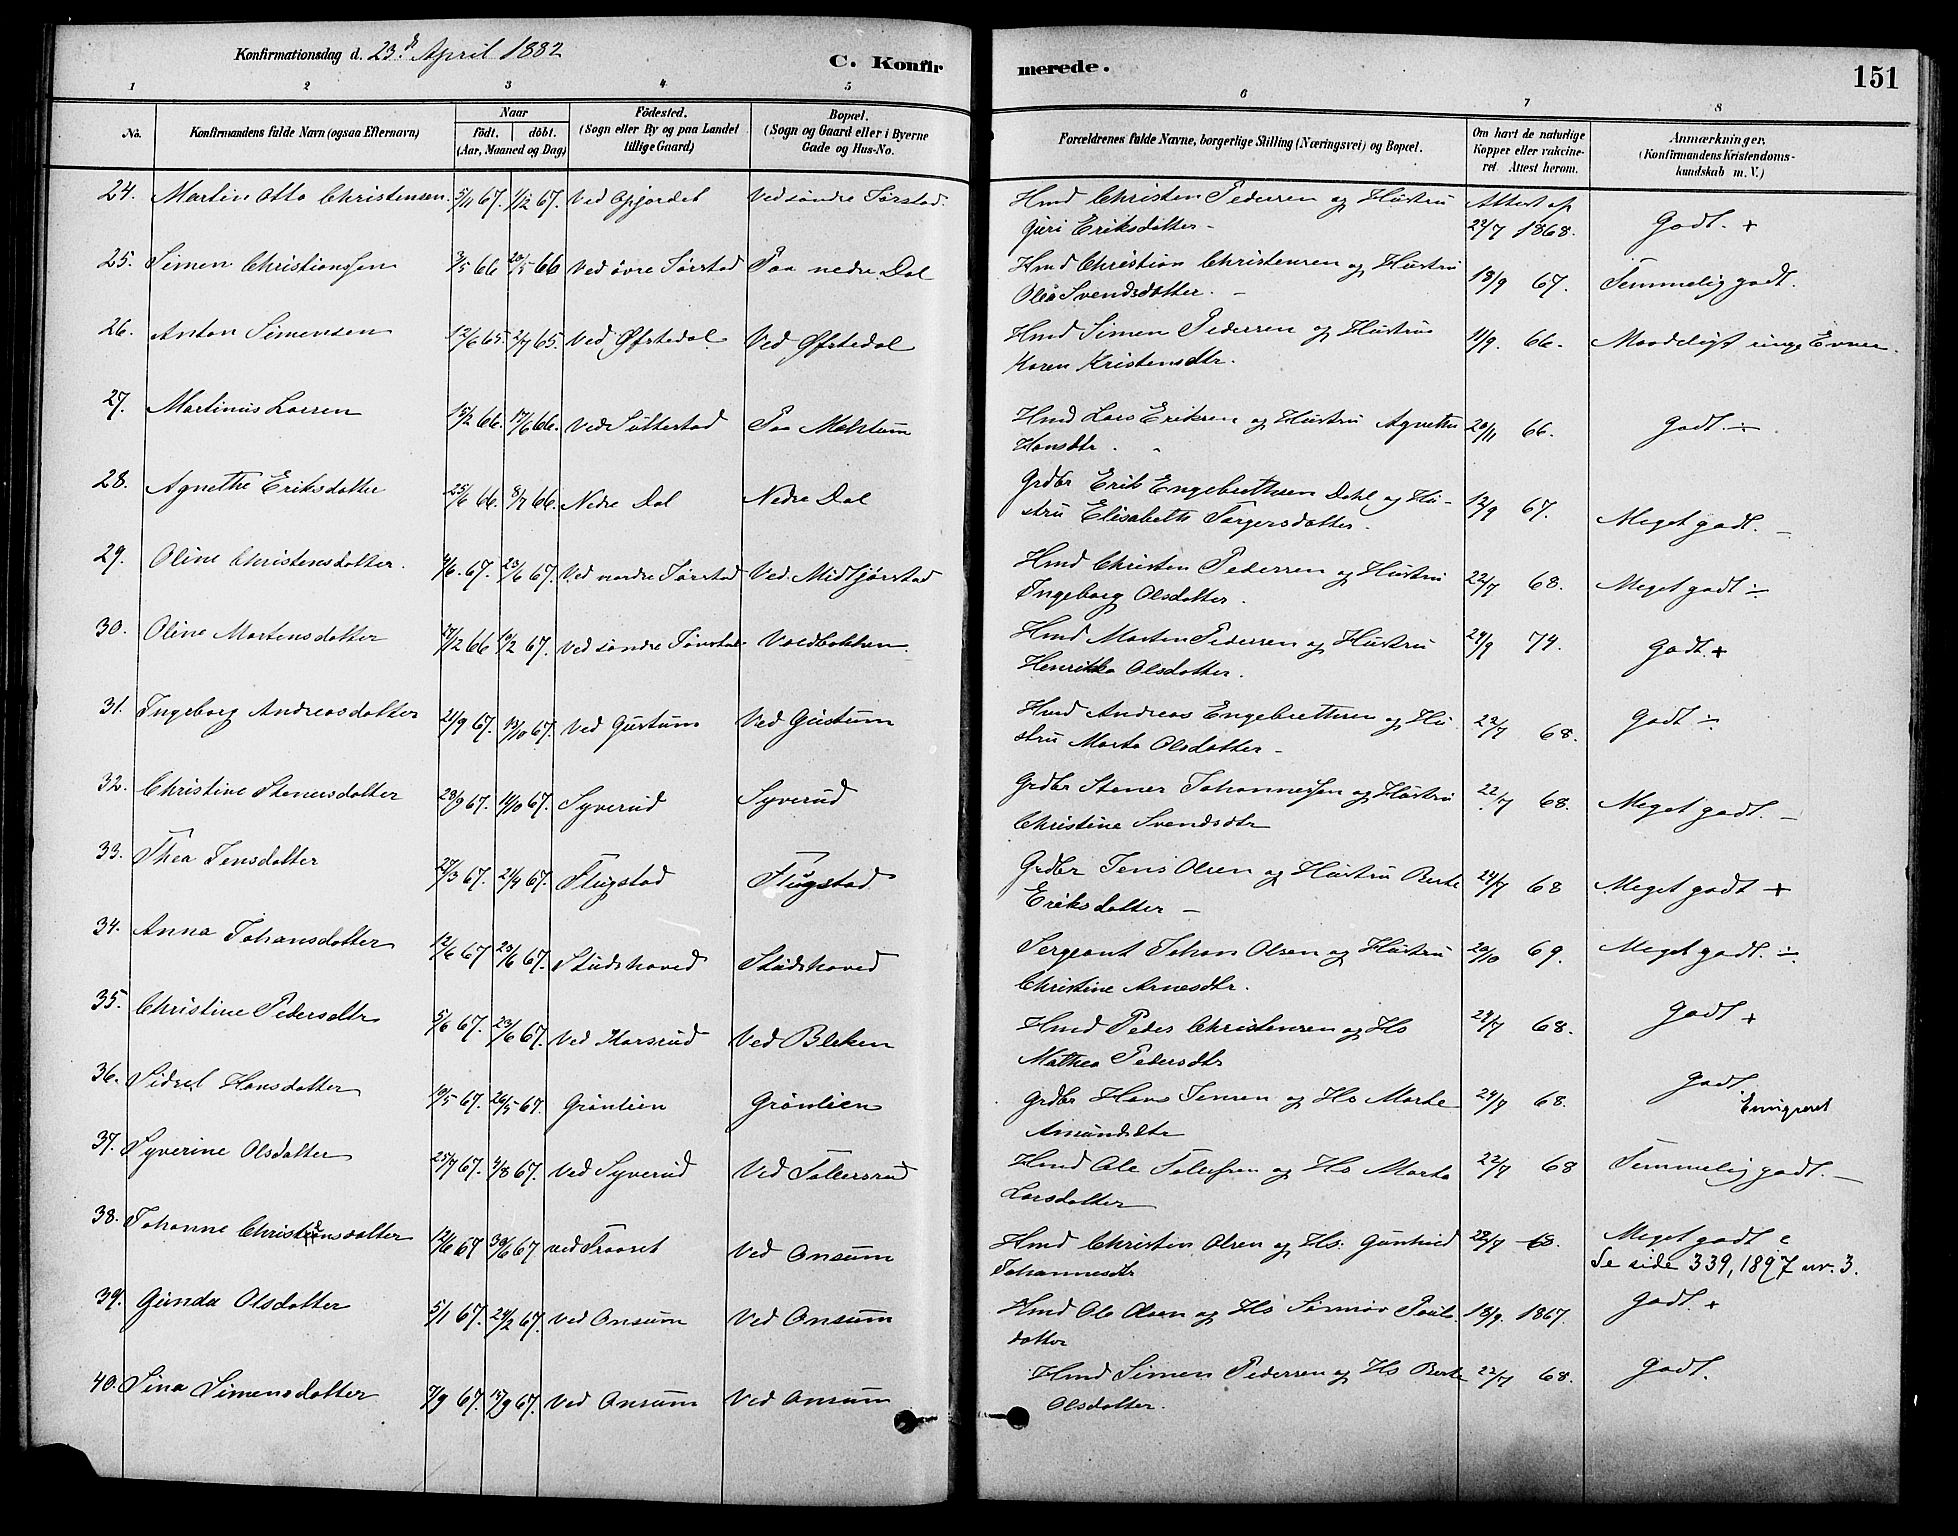 Konfirmationsdag d. 23.d April 1882
C. Konfirmerede.
151
1 2 3 4 5 6 7 8
No.
Konfirmandens fulde Navn (ogsaa Efternavn)
Naar
født. døbt.
(Aar, Maaned og Dag)
Fødested.
(Sogn eller By og paa Landet
tillige Gaard)
Bopæl.
(Sogn og Gaard eller i Byerne
Gade og Hus-No.
Forældrenes fulde Navne, borgerlige Stilling (Næringsvei) og Bopæl.
Om havt de naturlige
Kopper eller vakcine-
ret. Attest herom.
Anmærkninger.
(Konfirmandens Kristendoms-
kundskab m. V.)
24. Martin Otto Christensen 5/11 67. 1/12 67. Ved Gjordet Ved søndre Tørstad. Hmd Christen Pedersen og Hustru Attest af
Guri Eriksdatter - 22/7 1868. Godt. +
25. Simen Christiansen 3/5 66 20/5 66 Ved øvre Tørstad Paa nedre Dal Hmd Christian Christensen og Hustru
Olea Svendsdatter. - 18/9 67. Temmelig godt.
26. Anton Simensen 12/6 65. 2/7 65. Ved Øfstedal Ved Øfstedal Hmd Simen Pedersen og Hustru
Karen Kristensdtr. 11/9. 66. Maadeligt ringe Evner.
27. Martinus Larsen 15/2 66. 17/6 66. Ved Suttestad Paa Mæhlum Hmd Lars Eriksen og Hustru Agnethe
Hansdtr. 20/11 66. Godt ÷
28. Agnethe Eriksdatter 25/6 66. 8/7 66. Nedre Dal Nedre Dal Grdbr Erik Engebrethsen Dahl og Hu-
stru Elisabeth Torgersdatter. 12/9 67. Meget godt. -
29. Oline Christensdatter. 4/6. 67. 23/6 67. Ved nordre Tørstad Ved Midtjørstad Hmd Christen Pedersen og Hustru
Ingeborg Olsdatter. 22/7 68. Meget godt ÷
30. Oline Martensdatter 27/12 66 10/2 67. Ved søndre Tørstad Voldbakken. Hmd Marten Pedersen og Hustru
Henrikka Olsdatter. 29/9 74. Godt. +
31. Ingeborg Andreasdatter 21/9 67. 13/10 67. Ved Gustum Ved Gustum Hmd Andreas Engebrethsen og Hu-
stru Marte Olsdatter - 22/7 68. Godt ÷
32. Christine Stenersdatter 28/9 67. 11/10 67. Syverud Syverud Grdbr Stener Johannessen og Hustru
Christine Svendsdtr 22/7 68. Meget godt. -
33. Thea Jensdatter 27/3 67. 21/4 67. Flugstad Flugstad Grdbr Jens Olsen og Hustru Berte
Eriksdatter - 24/7 68 Meget godt +
34. Anna Johansdatter 12/6 67 23/6 67. Studshoved Studshoved Sergeant Johan Olsen og Hustru
Christine Arnesdtr. 20/10 69. Meget godt. ÷
35. Christine Pedersdtr 5/6 67. 23/6 67. Ved Korsrud Ved Bleken Hmd Peder Christensen og Hs
Mathea Pedersdtr 24/7 68. Godt +
36. Sidsel Hansdatter 10/5 67. 26/5 67. Grønlien Grønlien Grdbr Hans Jensen og Hs Marte
Amundsdtr 24/7 68. Godt. Emigreret
37. Syverine Olsdatter 25/7 67. 4/8 67. Ved Syverud Ved Tollersrud Hmd Ole Tollefsen og Hs Marte
Larsdatter 22/7 68 Temmelig godt. -
38. Johanne Christensdatter 12/6 67 30/6 67 ved Fraaset Ved Onsum Hmd Christen Olsen og Hs: Gunhild
Johannesdtr 22/7 68. Meget godt
Se side 339, 1897 nr. 3.
39. Gunda Olsdatter 5/1 67. 24/2 67. Ved Onsum Ved Onsum Hmd Ole Olsen og Hs Sønnøv Poul
datter 18/9. 1867. Godt. +
40. Sina Simensdatter 7/9 67. 17/9 67. Ved Onsum Ved Onsum Hmd Simen Pedersen og Hs Berte
Olsdatter. 22/7 68. Godt.